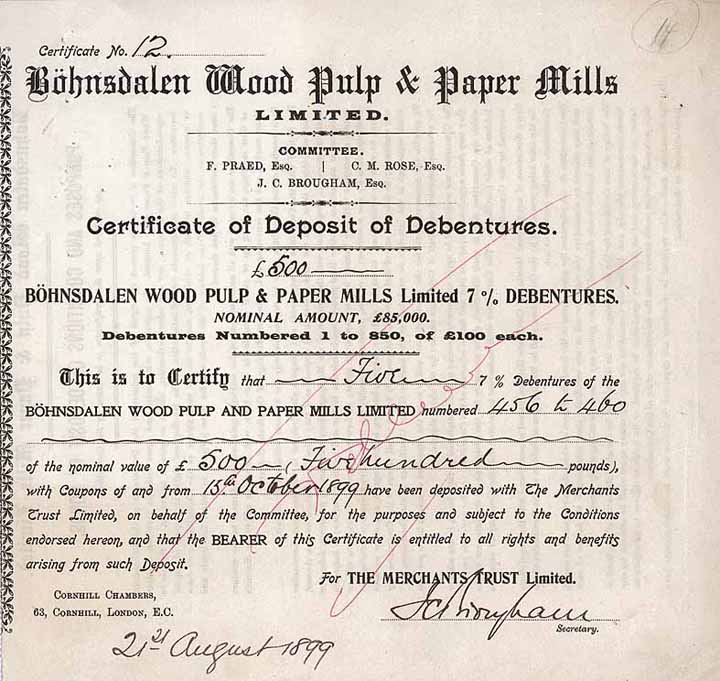 14
Certificate No. 12
Böhnsdalen Wood Pulp & Paper Mills
LIMITED.
COMMITTEE.
F. PRAED, Esq. | C. M. ROSE, Esq.
J. C. BROUGHAM, Esq.
Certificate of Deposit of Debentures.
£500
BÖHNSDALEN WOOD PULP & PAPER MILLS Limited 7 % DEBENTURES.
NOMINAL AMOUNT, £85,000.
Debentures Numbered 1 to 850, of £100 each.
This is to Certify that Five 7 % Debentures of the
BÖHNSDALEN WOOD PULP AND PAPER MILLS LIMITED numbered 456 to 460
of the nominal value of £ 500 (Five hundred pounds),
with Coupons of and from 15th October 1899 have been deposited with The Merchants
Trust Limited, on behalf of the Committee, for the purposes and subject to the Conditions
endorsed hereon, and that the BEARER of this Certificate is entitled to all rights and benefits
arising from such Deposit.
For THE MERCHANTS TRUST Limited.
CORNHILL CHAMBERS,
63, CORNHILL, LONDON, E.C.
J C Brougham
Secretary.
21st August 1899